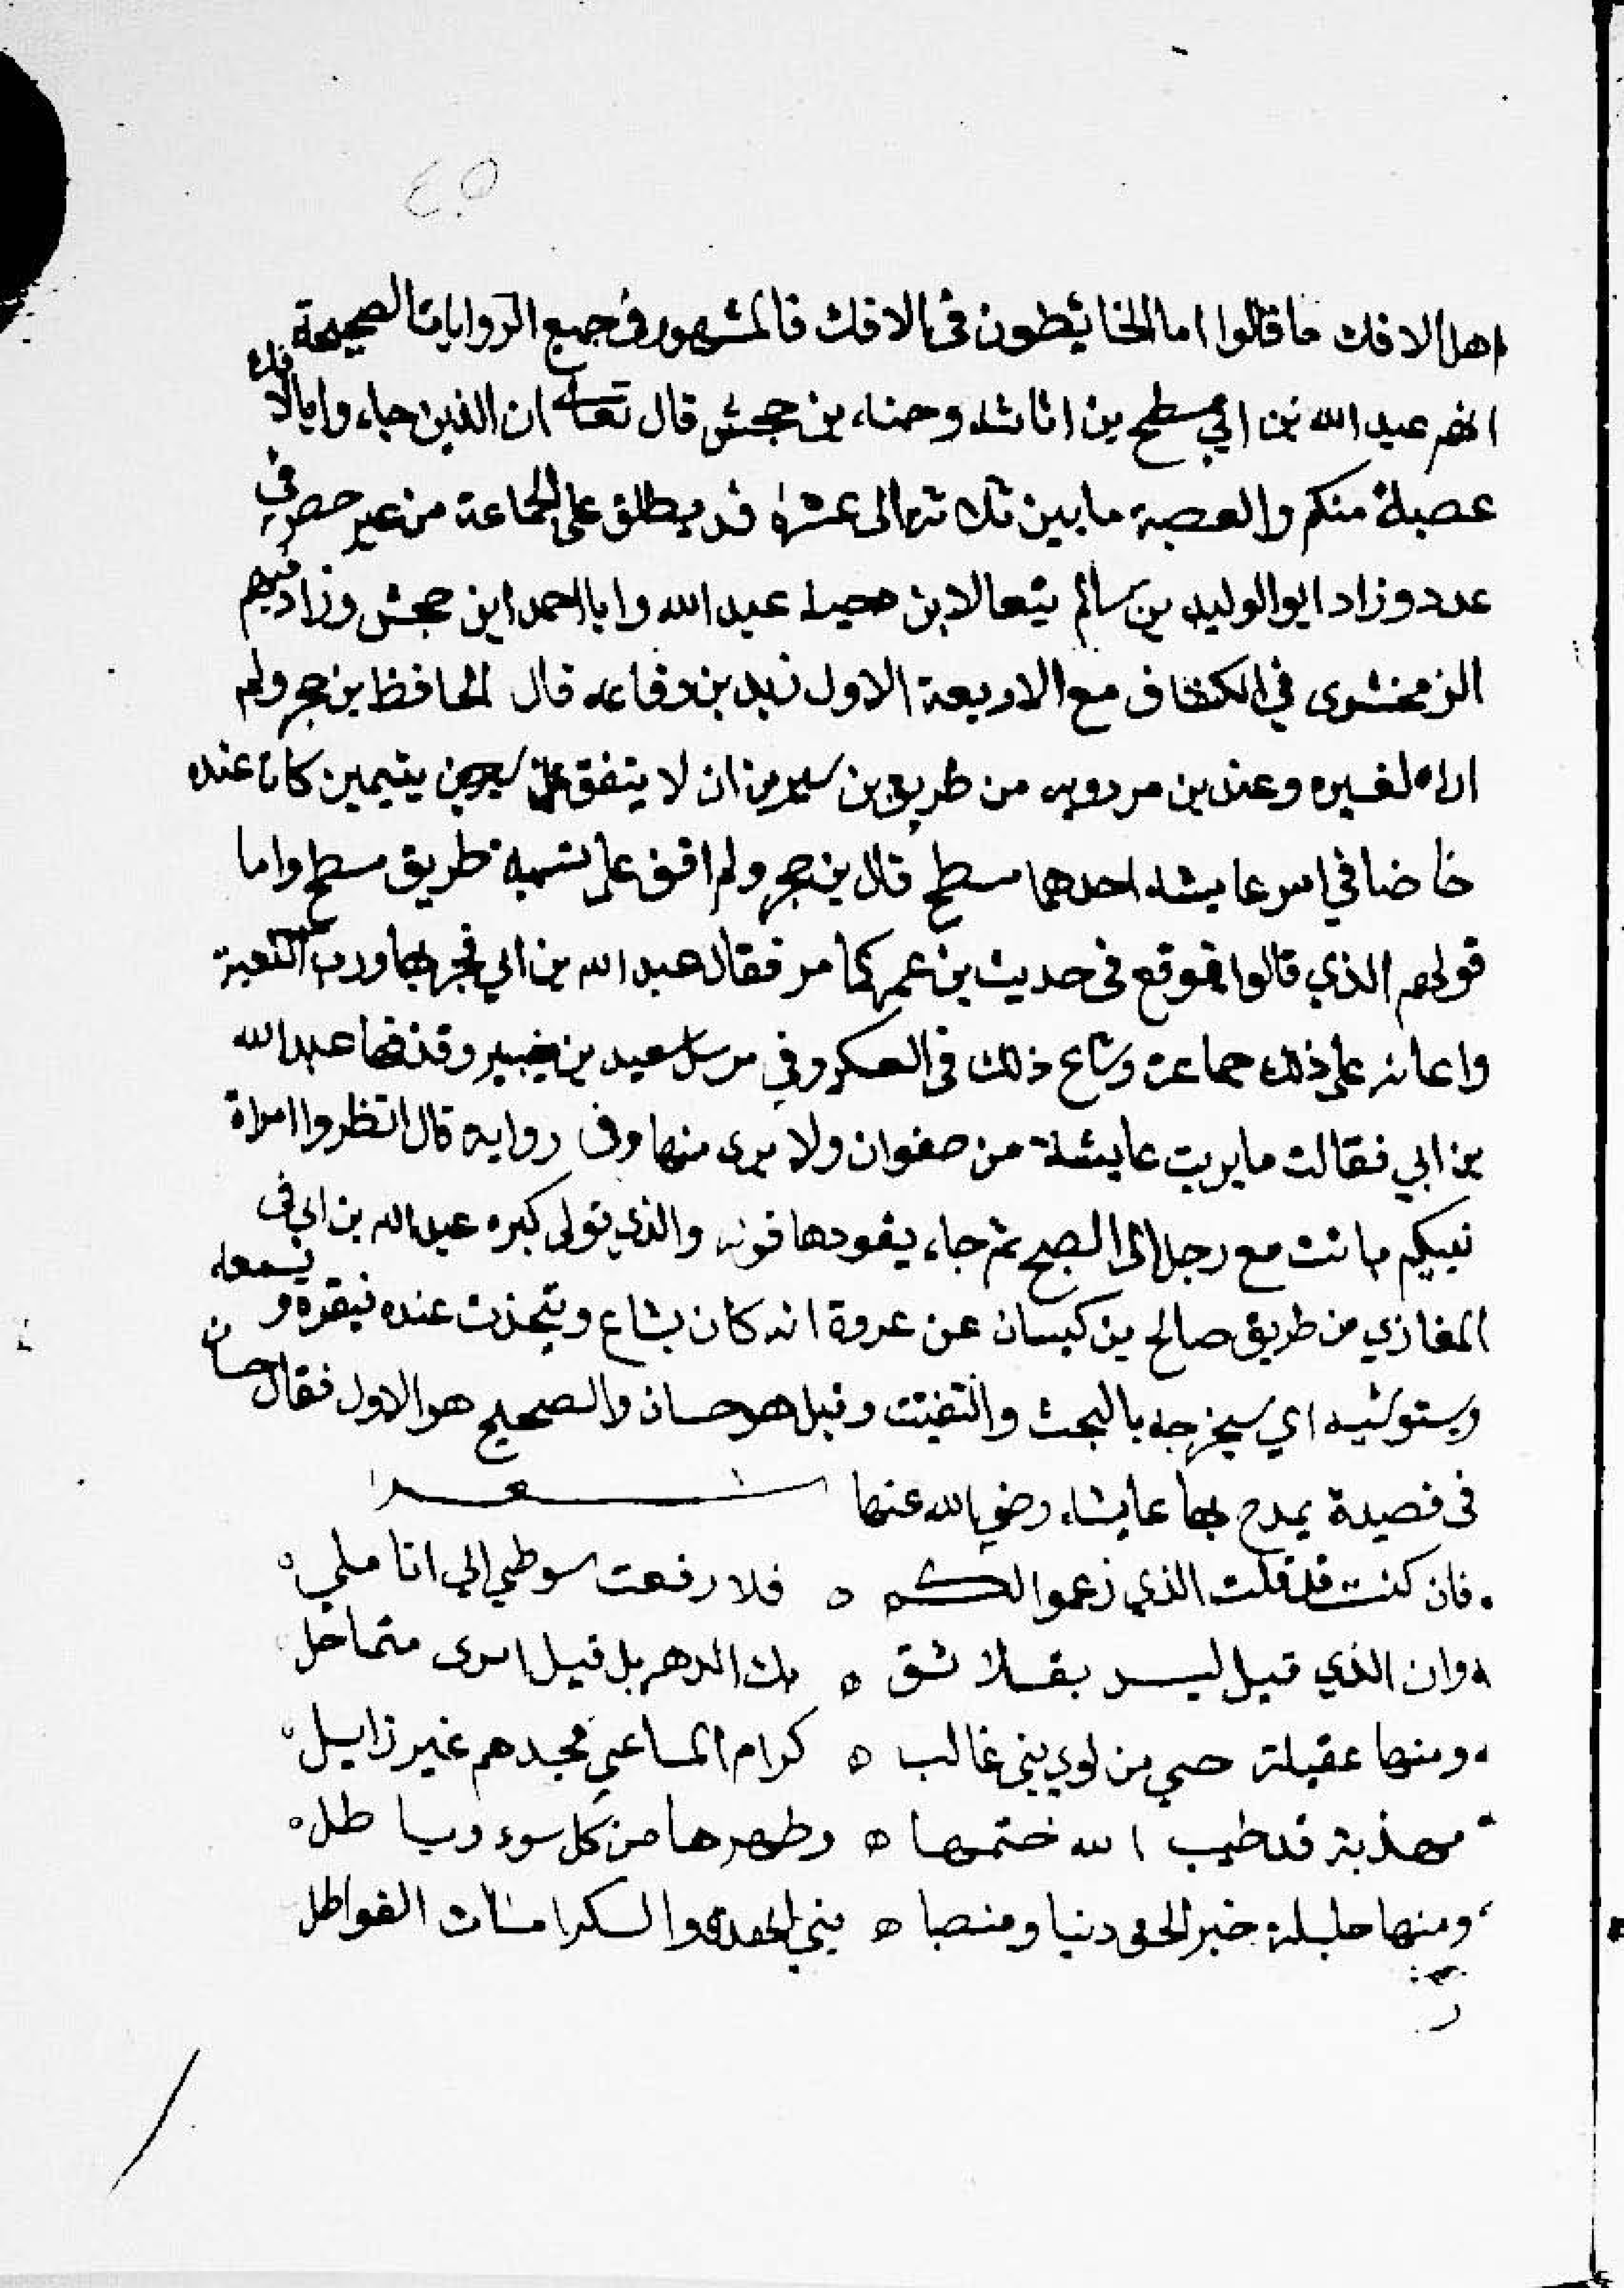 ٤٥
اهل الافك ما قالوا اما الخائطون فى الافك فالمشهور فى جميع الروايات الصحيحة
انهم عبد الله بن ابي مسطح بن اثاثه وحمنه بن جحش قال تعالى ان الذين جاء وا بالافك
عصبة منكم والعصبة ما بين ثلاثة الى عشرة قد يطلق على الجماعة من غير حصر في
عدد وزاد ابو الوليد بن سالم تبعا لابن عبد الله وابا احمد ابن جحش وزاد فيهم
الزمخشرى في الكشاف مع الاربعة الاول زيد بن رفاعه قال الحافظ بن حجر ولم
اراه لغيره وعند بن مردويه من طريق بن سيرين ان لا ينفق على يتيمين كانا عنده
خاضا في امر عايشه احدهما مسطح قال بن حجر ولم اقف على تسمية طريق مسطح واما
قولهم الذي قالوا فوقع فى حديث بن عمر كما مر فقال عبد الله بن ابي فجر بها ورب الكعبة
واعانه على ذلك جماعة وشاع ذلك فى العسكر وفي مرسل سعيد بن جبير وقذفها عبد الله
بن ابي فقالت ما بريت عايشة من صفوان ولا برى منها وفى رواية قال انظروا امراة
نبيكم باتت مع رجل الى الصبح ثم جاء يقودها قوله والذي تولى كبره عبد الله بن ابي فى
المغازي من طريق صالح بن كيسان عن عروة انه كان يشاع ويتحدث عنده فيقره ويسمعه
ويستوشيه اي يستخرجه بالبحث والتفتت وقيل هو حسان والصحيح هو الاول فقال حسان
فى قصيدة يمدح بها عايشه رضي الله عنها شعرا
فان كنت قد قلت الذي زعموا لكم ه فلا رفعت سوطي الي انا ملي ه
ه وان الذي قيل ليس بقلا ئق ه بك الدهر بل قيل امرى متماحل
ه ومنها عقيلة حي من لوي بنى غالب ه كرام المساعي مجدهم غير زايل ه
مهذبة قد طيب الله ختمها ه وطهرها من كل سوء وبا طل ه
ومنها حليلة خير الخلق دنيا ومنصبا ه نبي الهدى والمكرامات الفواطل